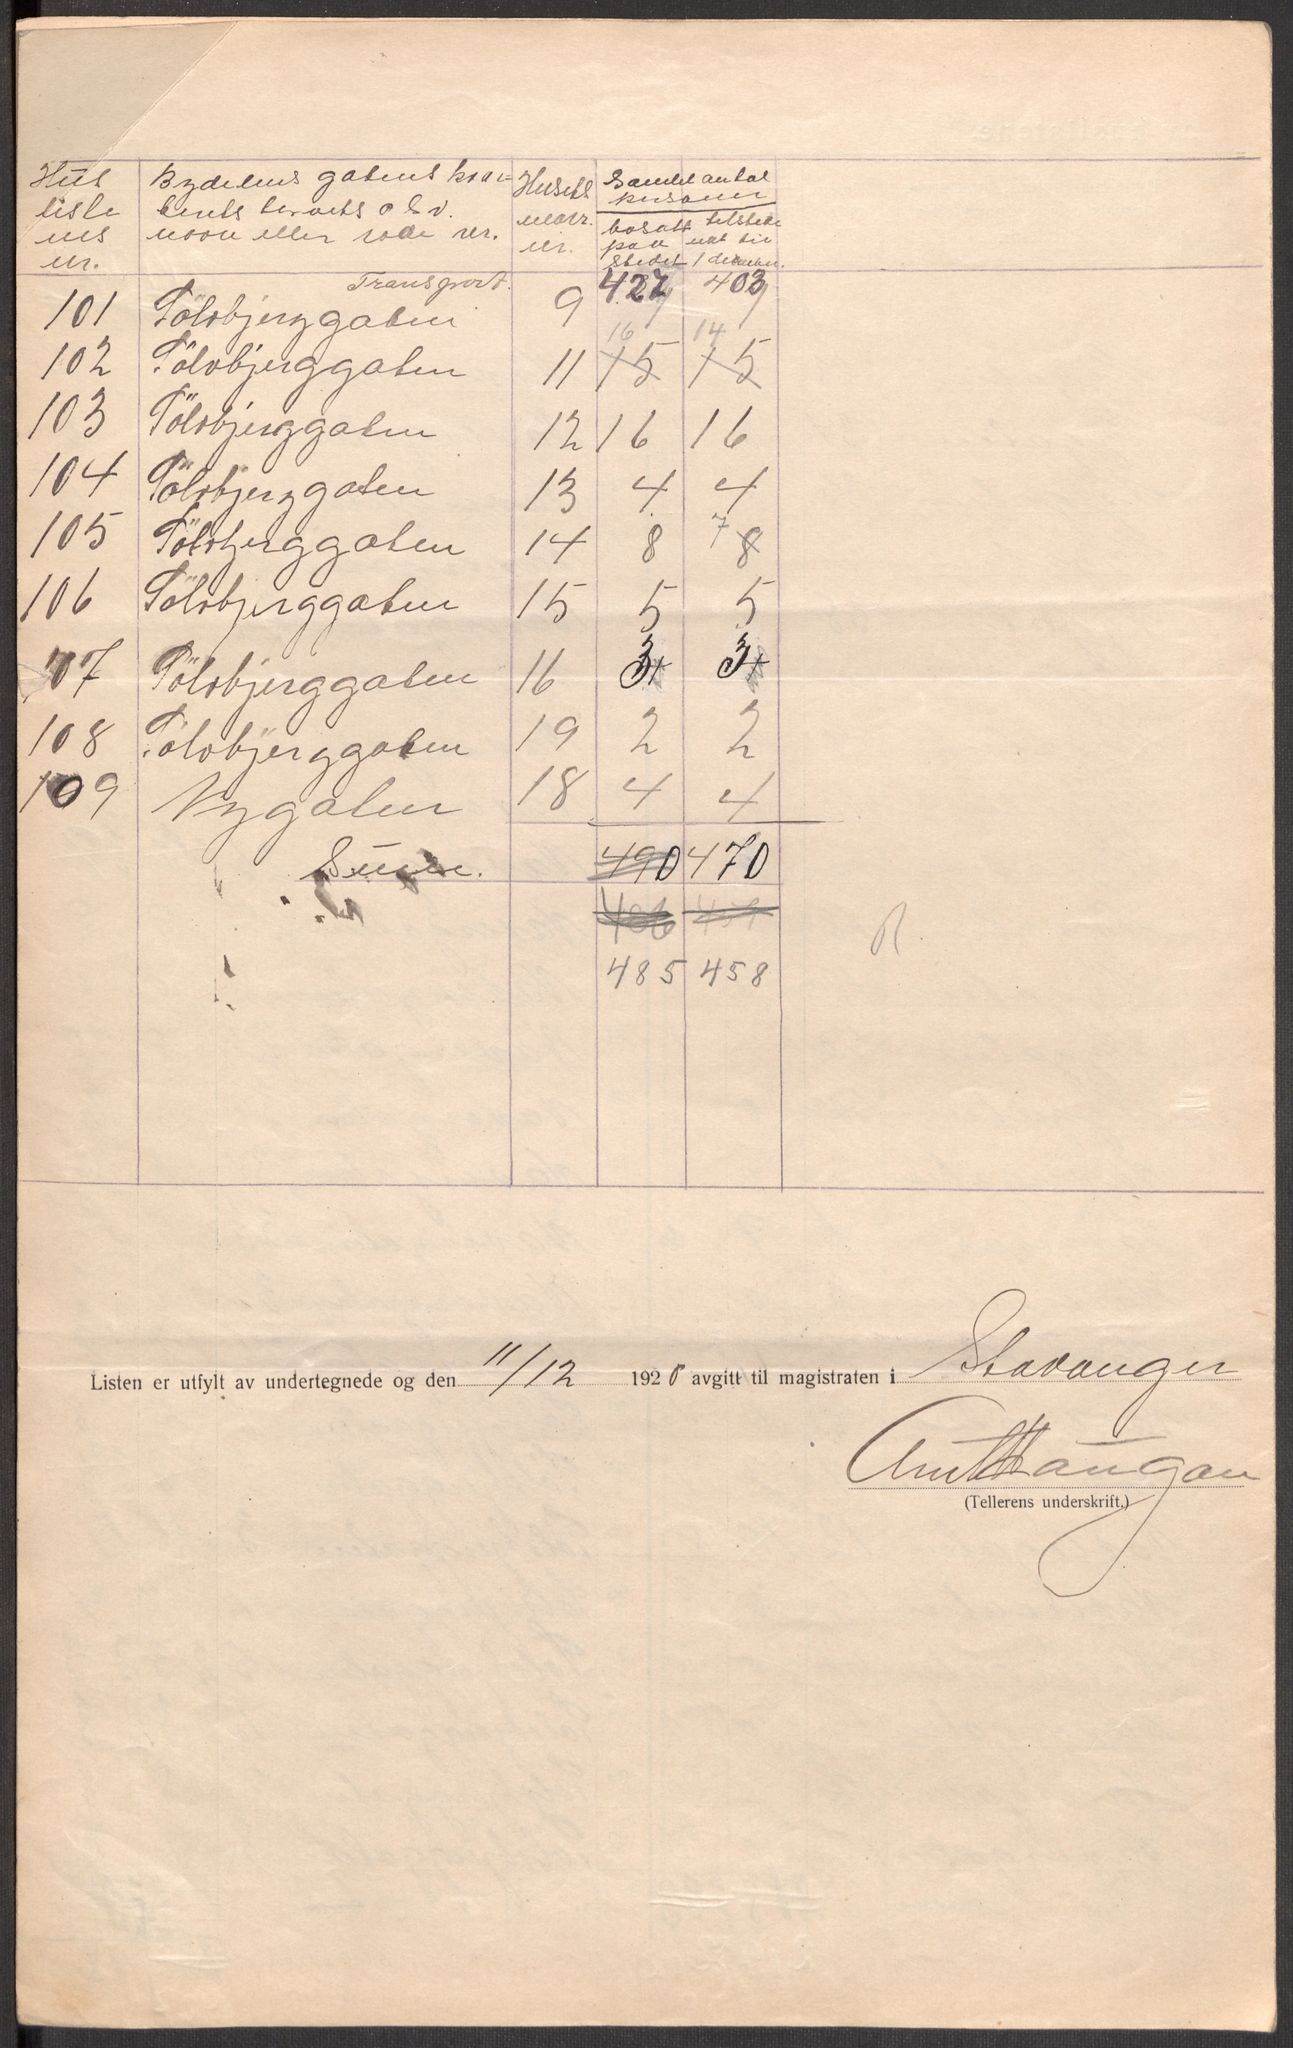 Hus Bydelens gatens kvar- Husets Samlet antal
liste terets torvets o s v. matr. personer
nes navn eller rode nr. nr. bosatt paa stedet tilstede nat til 1 december.
nr.
Transport. 427 403
101 Tölvbjerggaten 9 9 9
16 14
102 Tölvbjerggaten 11 15 15
103 Tölvbjerggaten 12 16 16
104 Tölvbjerggaten 13 4 4
105 Tölvbjerggaten 14 8 7 8
106 Tölvbjerggaten 15 5 5
107 Tölvbjerggaten 16 3 3
108 Tölvbjerggaten 19 2 2
109 Nygaten 18 4 4
Sum. 490 470
486 459
485 458
R
Listen er utfylt av undertegnede og den 11/12 1920 avgitt til magistraten i Stavanger
Haugan
(Tellerens underskrift.)